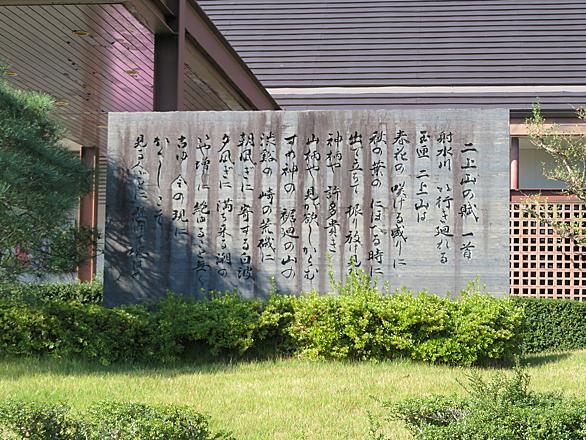 二上山の賦一首
射水川 い行き廻れる
玉匣 二上山は
春花の 咲ける盛りに
秋の葉の にほへる時に
出で立ちて 振り放け見れば
神柄や 許多貴き
山柄や 見が欲しからむ
すめ神の 裾廻の山の
渋谿の 崎の荒磯に
朝凪ぎに 寄する白波
夕凪ぎに 満ち来る潮の
いや増に 絶ゆること無く
古ゆ 今の現に
かくしこそ
見る人ごとに